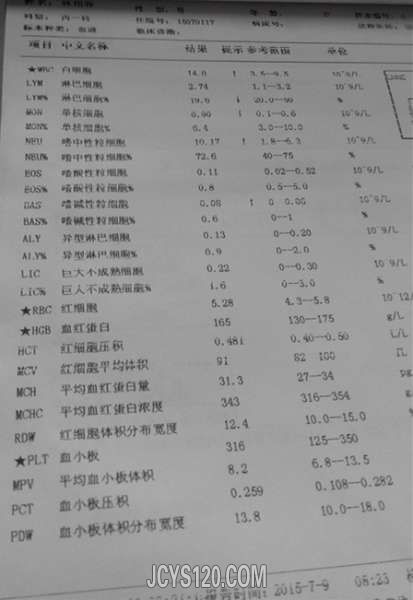 科别: 内一科 住院号: 15070117 病床号:
标本种类: 血液 临床诊断:
项目 中文名称 结果 提示 参考范围 单位
★WBC 白细胞 14.0 ↑ 3.5--9.5 10^9/L
LYM 淋巴细胞 2.74 1.1--3.2 10^9/L
LYM% 淋巴细胞% 19.6 ↓ 20.0--50 %
MON 单核细胞 0.90 ↑ 0.1--0.6 10^9/L
MON% 单核细胞% 6.4 3.0--10.0 %
NEU 嗜中性粒细胞 10.17 ↑ 1.8--6.3 10^9/L
NEU% 嗜中性粒细胞% 72.6 40--75 %
EOS 嗜酸性粒细胞 0.11 0.02--0.52 10^9/L
EOS% 嗜酸性粒细胞% 0.8 0.5--5.0 %
BAS 嗜碱性粒细胞 0.08 ↑ 10^9/L
BAS% 嗜碱性粒细胞% 0.6 0--1 %
ALY 异型淋巴细胞 0.13 0--0.20 10^9/L
ALY% 异型淋巴细胞% 0.9 0--2.0 %
LIC 巨大不成熟细胞 0.22 0--0.30 10^9/L
LIC% 巨大不成熟细胞% 1.6 0--3.0 %
★RBC 红细胞 5.28 4.3--5.8 10^12/
★HGB 血红蛋白 165 130--175 g/L
HCT 红细胞压积 0.481 0.40--0.50 L/L
MCV 红细胞平均体积 91 82--100 fL
MCH 平均血红蛋白量 31.3 27--34 pg
MCHC 平均血红蛋白浓度 343 316--354 g/
RDW 红细胞体积分布宽度 12.4 10.0--15.0 %
★PLT 血小板 316 125--350
MPV 平均血小板体积 8.2 6.8--13.5
PCT 血小板压积 0.259 0.108--0.282
PDW 血小板体积分布宽度 13.8 10.0--18.0
报告时间: 2015-7-9 08:23
JCYS120.COM